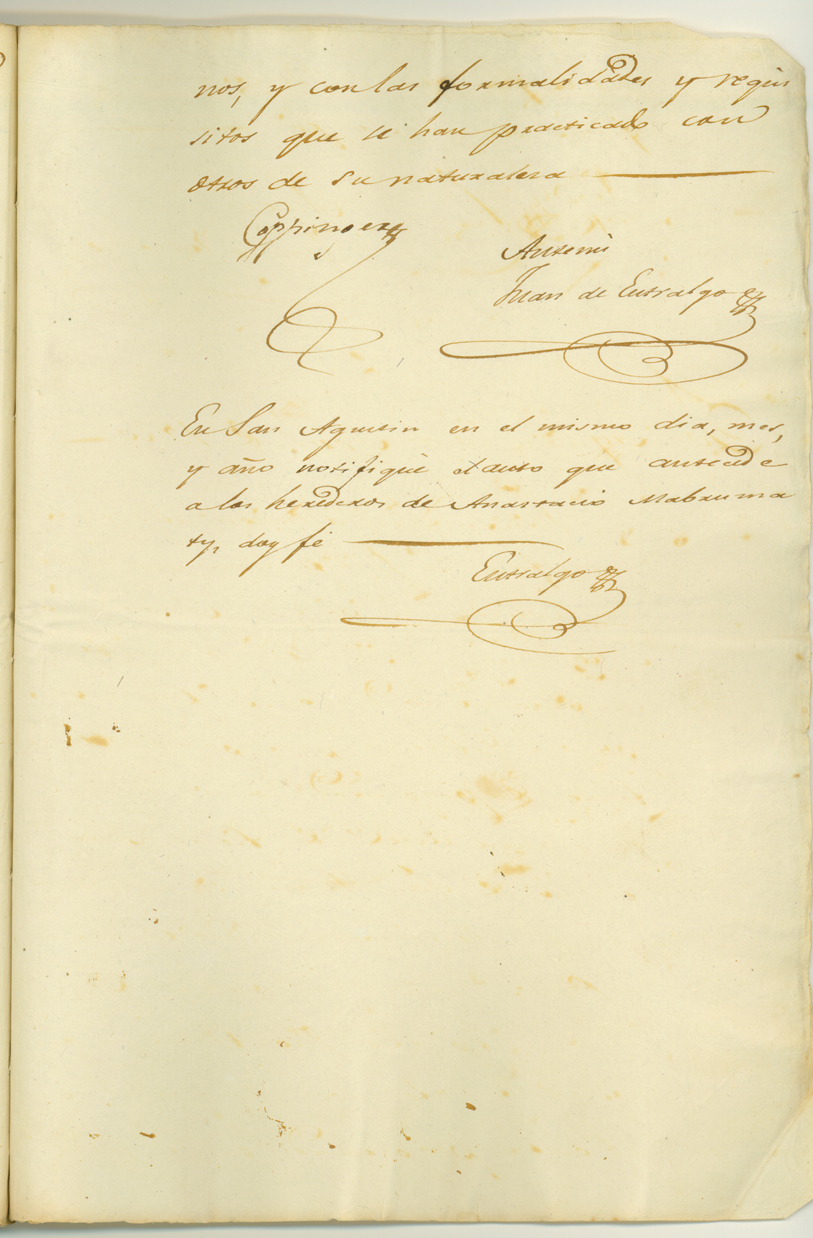 nos, y con las formalidades y requi
sitos que se han practicado con
otros de su naturaleza
Coppinger
Antemi
Juan de Entralgo
En San Agustin en el mismo dia, mes,
y año notifiqué el auto que antecede
a los herederos de Anastacio Mabruma
ty, doy fé
Entralgo